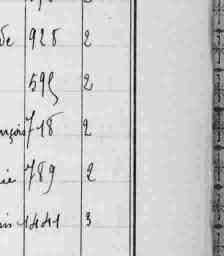 de 928 2
595 2
nçois 718 2
ie 789 2
in 1441 3